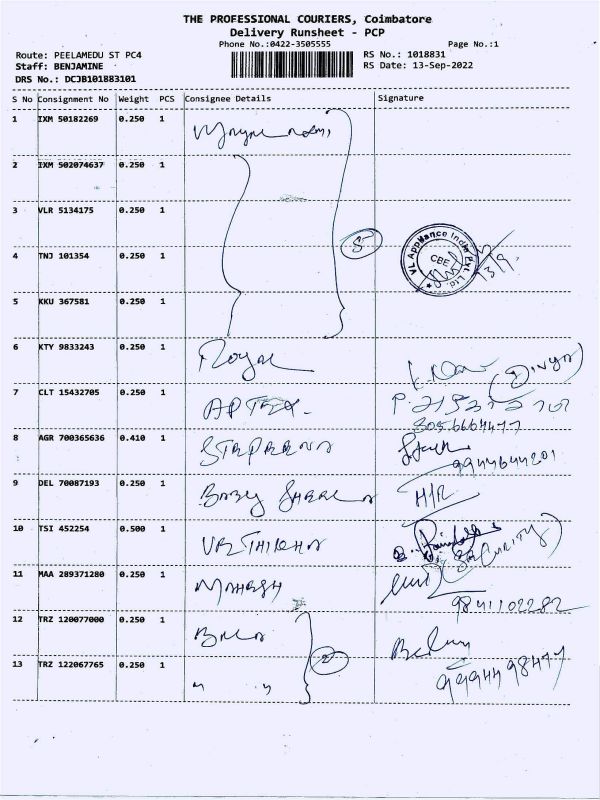 THE PROFESSIONAL COURIERS, Coimbatore
Delivery Runsheet - PCP
Phone No.:0422-3505555
Page No.:1
Route: PEELAMEDU ST PC4
RS No.: 1018831
Staff: BENJAMINE
RS Date: 13-Sep-2022
DRS No.: DCJB101883101
S No Consignment No Weight PCS Consignee Details Signature
1 IXM 50182269 0.250 1
2 IXM 502074637 0.250 1
3 VLR 5134175 0.250 1
5
VL Appliance India Pvt. Ltd.
CBE
13/9
4 TNJ 101354 0.250 1
5 KKU 367581 0.250 1
6 KTY 9833243 0.250 1 Royal
(Divya)
7 CLT 15432705 0.250 1 APTEX
8 AGR 700365636 0.410 1
9944644201
9 DEL 70087193 0.250 1 BABY
10 TSI 452254 0.500 1
(SECURITY)
11 MAA 289371280 0.250 1 MAHESH
9841102282
12 TRZ 120077000 0.250 1
2
13 TRZ 122067765 0.250 1 " "
9994498477